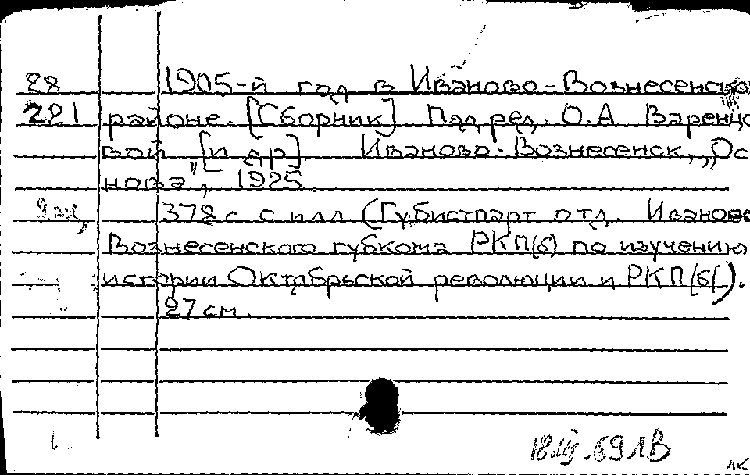 28 1905-й год в Иваново-Вознесенско
221 районе. [Сборник]. Под ред. О.А. Варенцо
вой [и др] Иваново-Вознесенск, „Ос
нова", 1925.
378 с. с илл (Губистпарт отд. Иваново
Вознесенского губкома РКП(б) по изучению
истории Октябрьской революции и РКП(б).
27 см.